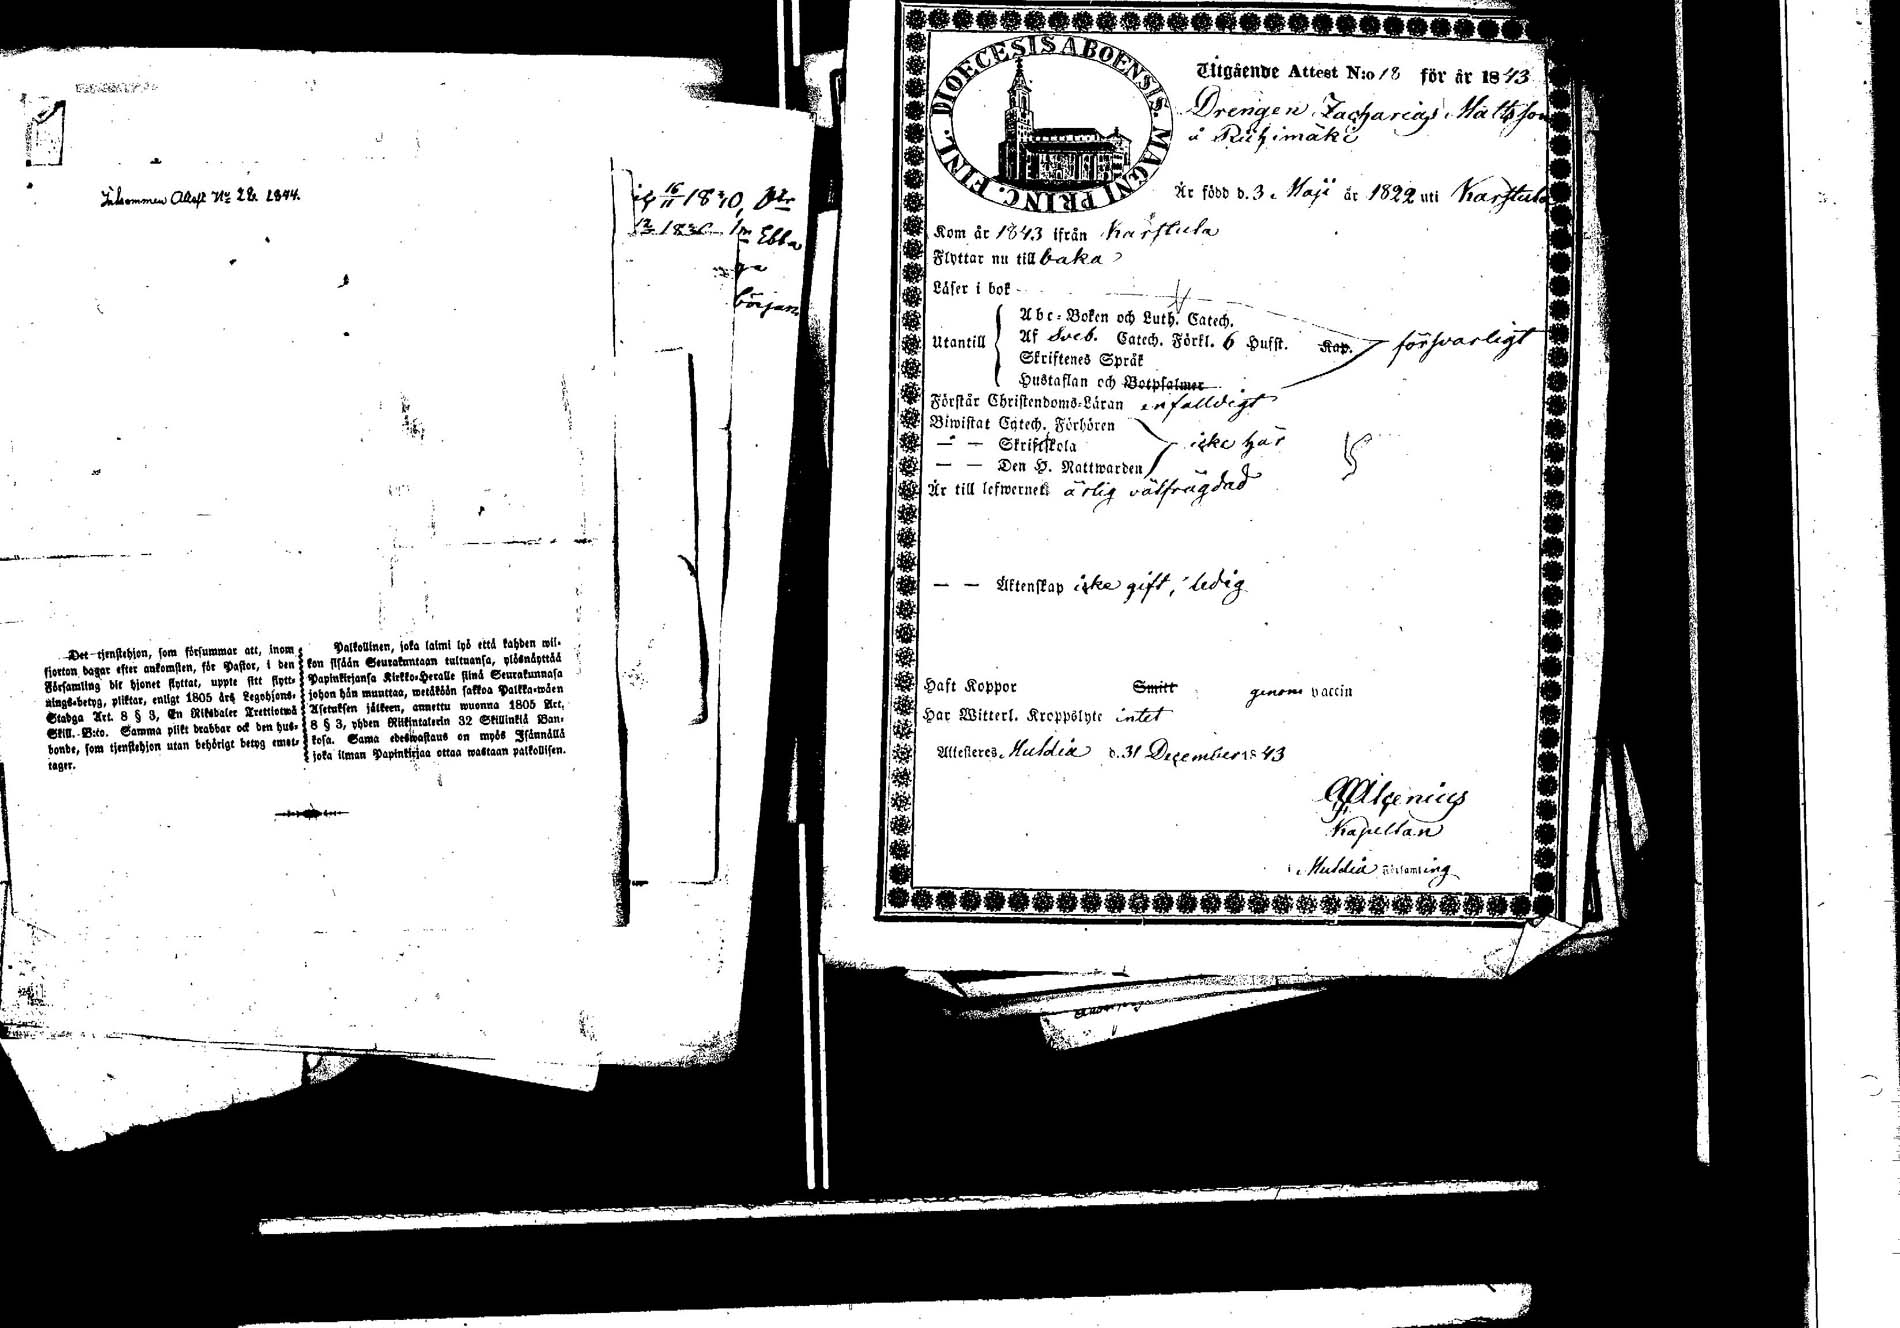 Inkommen Attest No 28. 1844.
16/11 1840,
Ebba
början
Det tjenstehjon, som försummar att, inom
fjorton dagar efter ankomsten, för Pastor, i den
Församling dit hjonet flyttat, uppte sitt flytt-
nings-betyg, pliktar, enligt 1805 års Legohjons-
Stadga Art. 8 § 3, En Riksdaler Trettiotwå
Skill. B:co. Samma plikt drabbar ock den hus-
bonde, som tjenstehjon utan behörigt betyg emot-
tager.
Palkollinen, joka laimi lyö että kahden wii-
kon sisään Seurakuntaan tultuansa, ylösnäyttää
Papinkirjansa Kirkko-Heralle siinä Seurakunnasa
johon hän muuttaa, wetäköön sakkoa Palkka-wäen
Asetuksen jälkeen, annettu wuonna 1805 Art,
8 § 3, yhden Riikintalerin 32 Skillinkiä Ban-
kosa. Sama edeswastaus on myös Isännällä
joka ilman Papinkirjaa ottaa wastaan palkollisen.
DIOECESIS ABOENSIS. MAGNI PRINC. FINL.
Utgående Attest N:o 18 för år 1843
Drengen Zacharias Mattsson
å Riihimäki
Är född d. 3 Maji år 1822 uti Karstula
Kom år 1843 ifrån Karstula
Flyttar nu till baka
Läser i bok
Utantill
Abc-Boken och Luth. Catech.
Af Sveb. Catech. Förkl. 6 Hufst. Kap. försvarligt
Skriftenes Språk
Hustaflan och Botpsalmer
Förstår Christendoms-Läran enfalldigt
Biwistat Catech. Förhören
— — Skriftskola icke här
— — Den H. Nattwarden
Är till lefwernet ärlig välfrägdad
— — Äktenskap icke gift, ledig
Haft Koppor Smitt genom vaccin
Har Witterl. Kroppslyte intet
Attesteres Multia d. 31 December 1843
Alcenius
Kapellan
i Multia Församling